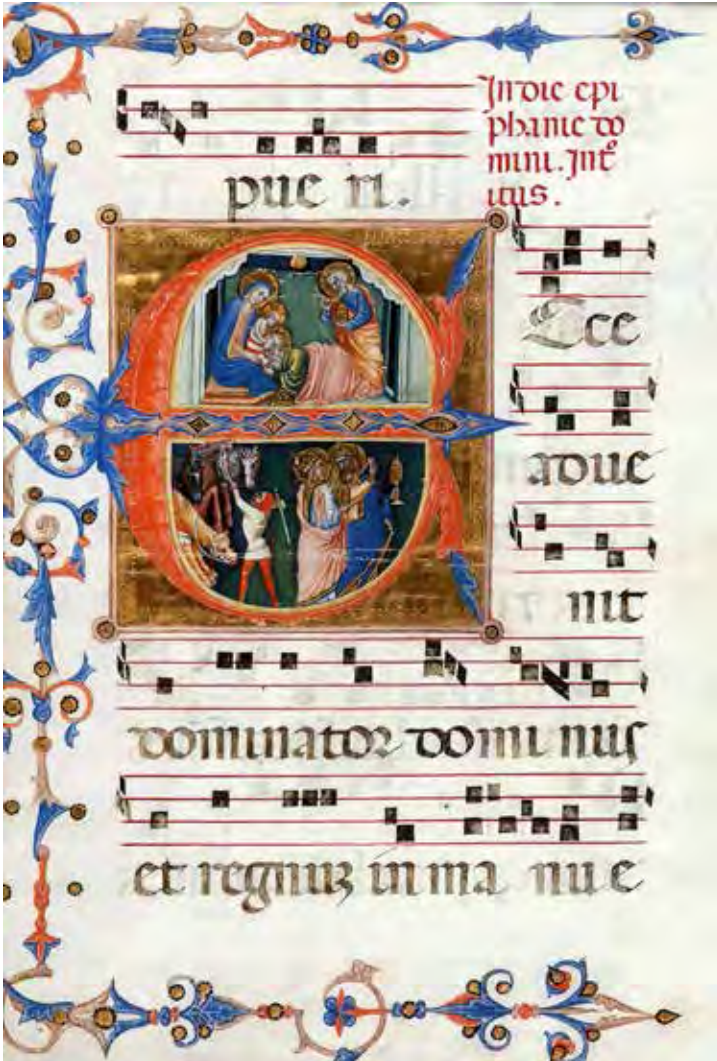 pue ri.
In die epi
phanie do
mini. Int°
itus.
Ecce
adue
nit
dominator domi nus
et regnuz in ma nu e